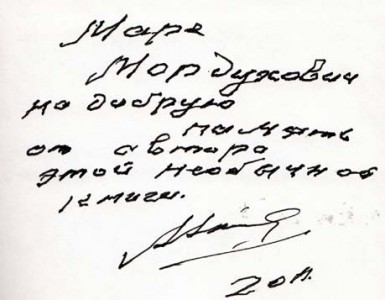 Маре
Мордухович
на добрую
память
от автора
этой необычной
книги.